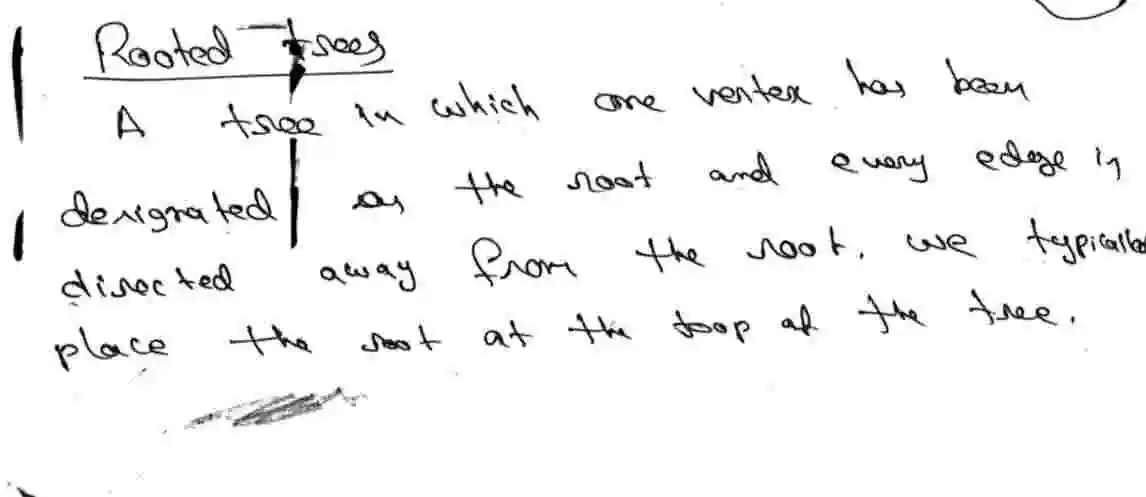 Rooted trees
A tree in which one vertex has been
designated as the root and every edge is
directed away from the root. we typically
place the root at the toop of the tree.